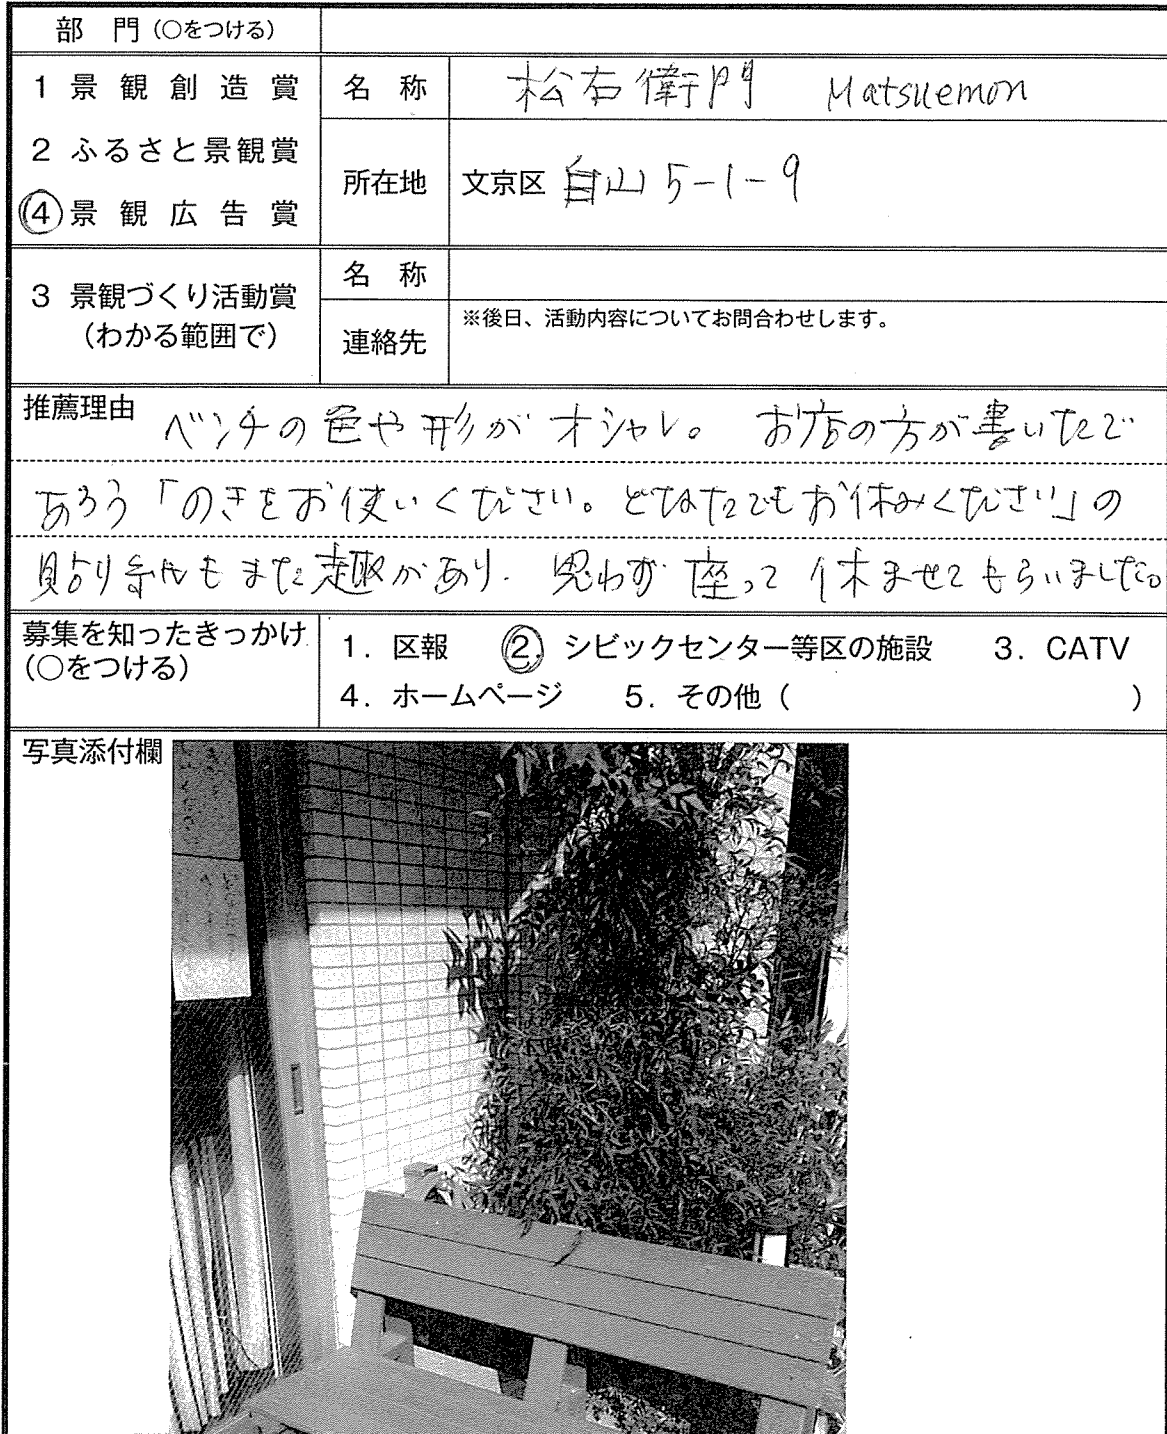 部 門 (○をつける)
1 景観創造賞
2 ふるさと景観賞
④ 景観広告賞
名 称 松右衛門 Matsuemon
所在地 文京区 白山 5-1-9
3 景観づくり活動賞
(わかる範囲で)
名 称
連絡先 ※後日、活動内容についてお問合わせします。
推薦理由 ベンチの色や形がオシャレ。 お店の方が書いたで
あろう「のきをお使いください。どなたでもお休みください」の
貼り紙もまた趣があり、思わず座って休ませてもらいました。
募集を知ったきっかけ
(○をつける)
1. 区報 ②. シビックセンター等区の施設 3. CATV
4. ホームページ 5. その他 ( )
写真添付欄